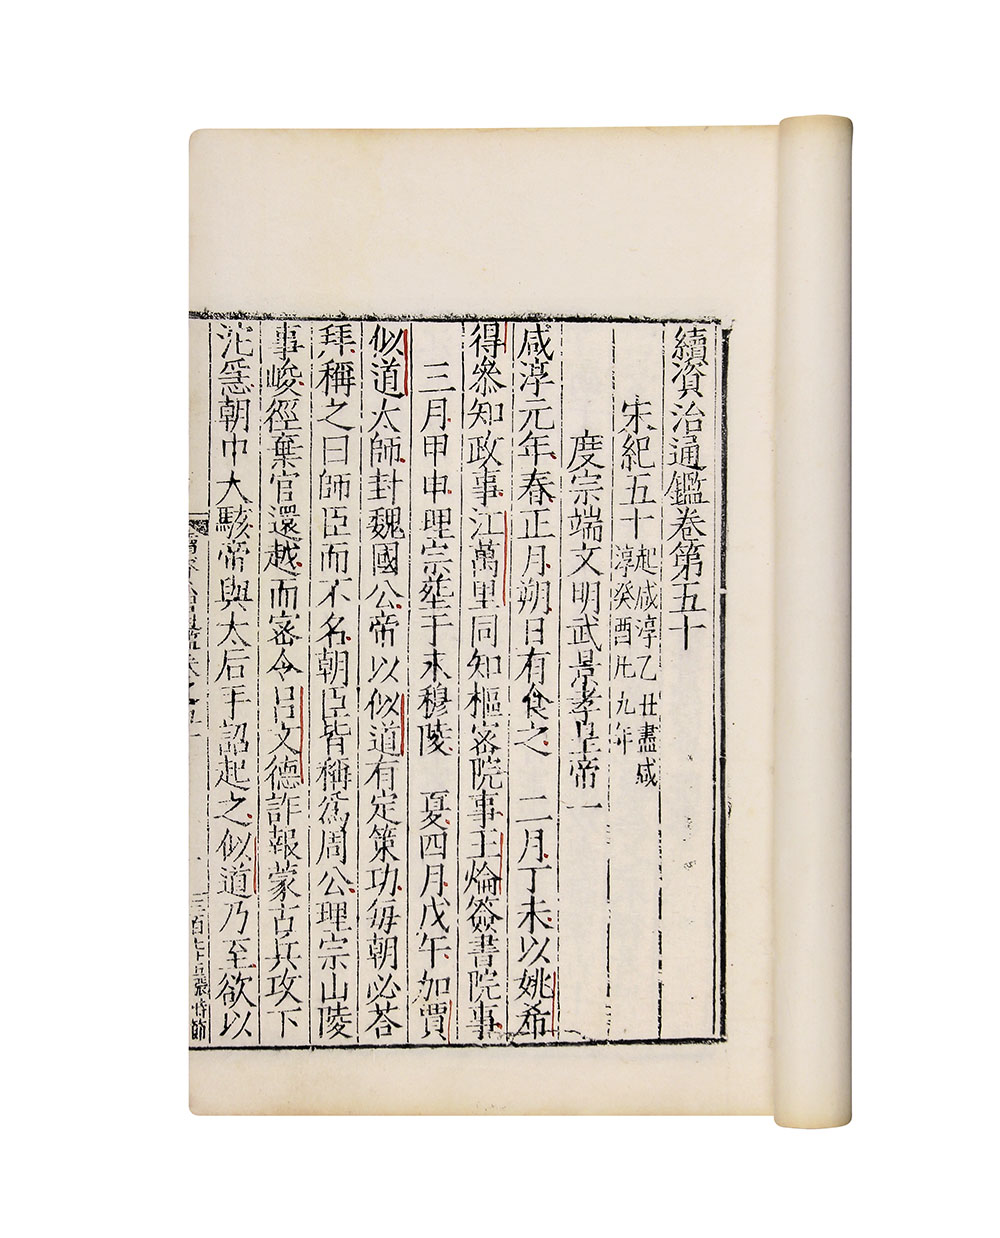 續資治通鑑卷第五十
宋紀五十 起咸淳乙丑盡咸
淳癸酉凡九年
度宗端文明武景孝皇帝一
咸淳元年春正月朔日有食之 二月丁未以姚希
得參知政事江萬里同知樞密院事王爚簽書院事
三月甲申理宗塟于永穆陵 夏四月戊午加賈
似道太師封魏國公帝以似道有定策功每朝必荅
拜稱之曰師臣而不名朝臣皆稱爲周公理宗山陵
事峻徑棄官還越而密令吕文德詐報蒙古兵攻下
沱急朝中大駭帝與太后手詔起之似道乃至欲以